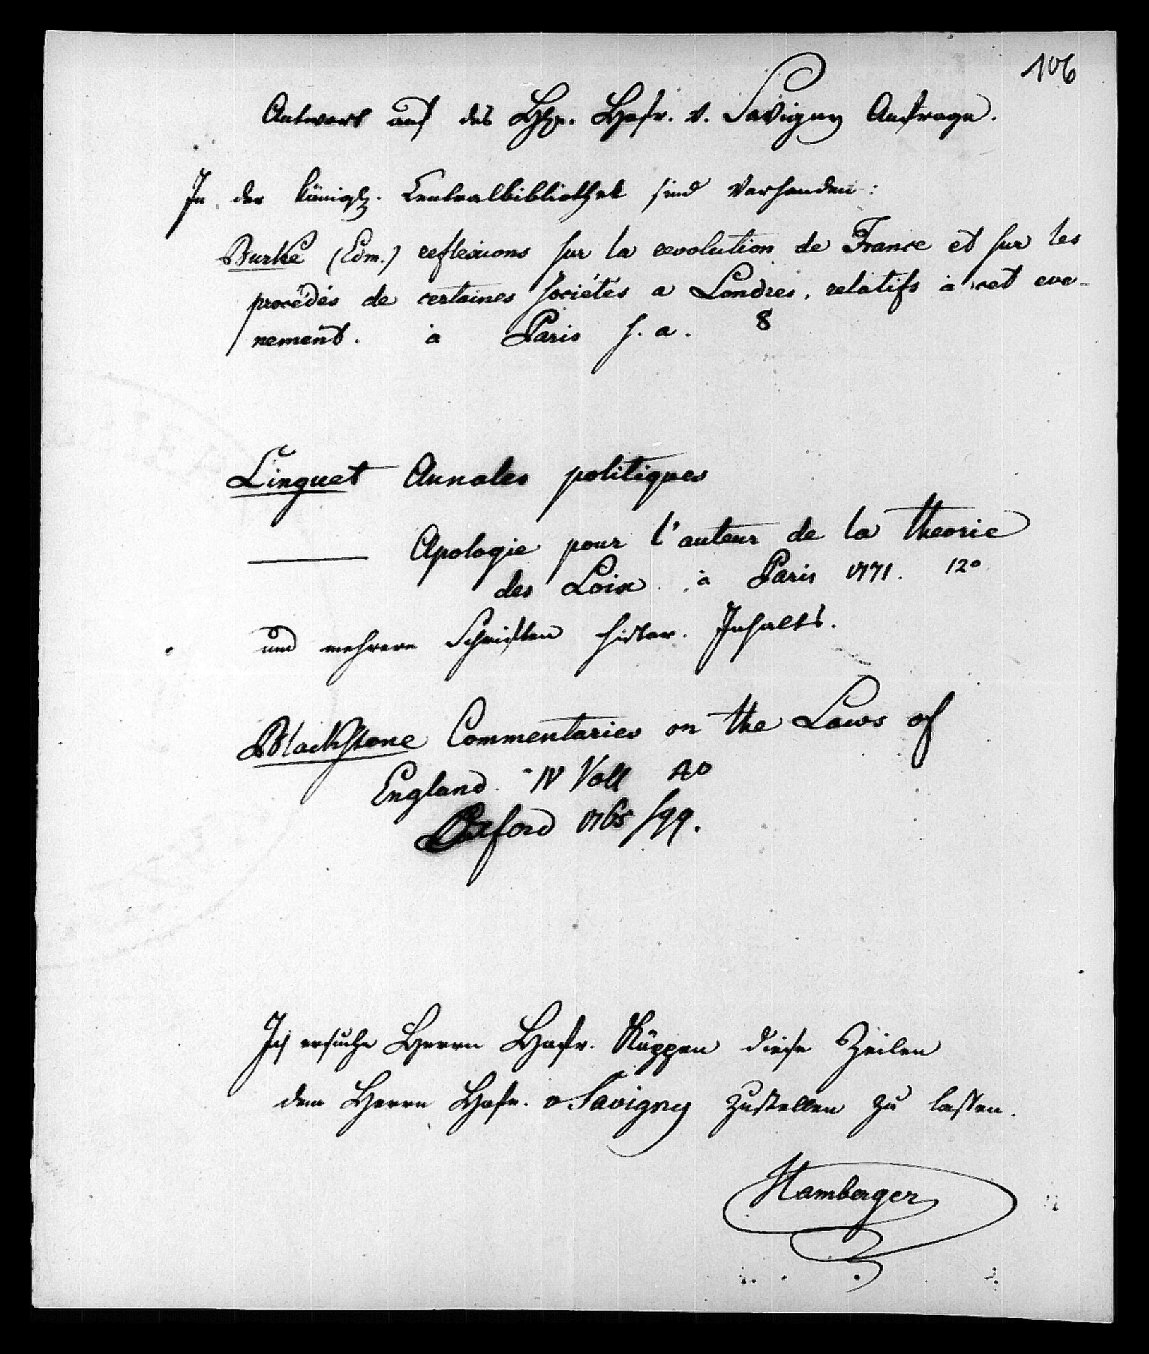 106
Antwort auf des Hrn. Hofr. v. Savigny Anfrage.
In der königl. Centralbibliothek sind vorhanden:
Burke (Edm.) reflexions sur la revolution de France et sur les
procédés de certaines sociétés a Londres, relatifs à cet eve-
nement. à Paris s. a. 8
Linguet Annales politiques
——— Apologie pour l'auteur de la theorie
des Loix. à Paris 1771. 12°
und mehrere Schriften histor. Inhalts.
Blackstone Commentaries on the Laws of
England. IV Voll 4°
Oxford 1765/99.
Ich ersuche Herrn Hofr. Köppen diese Zeilen
dem Herrn Hofr. v Savigny zustellen zu lassen.
Hamberger